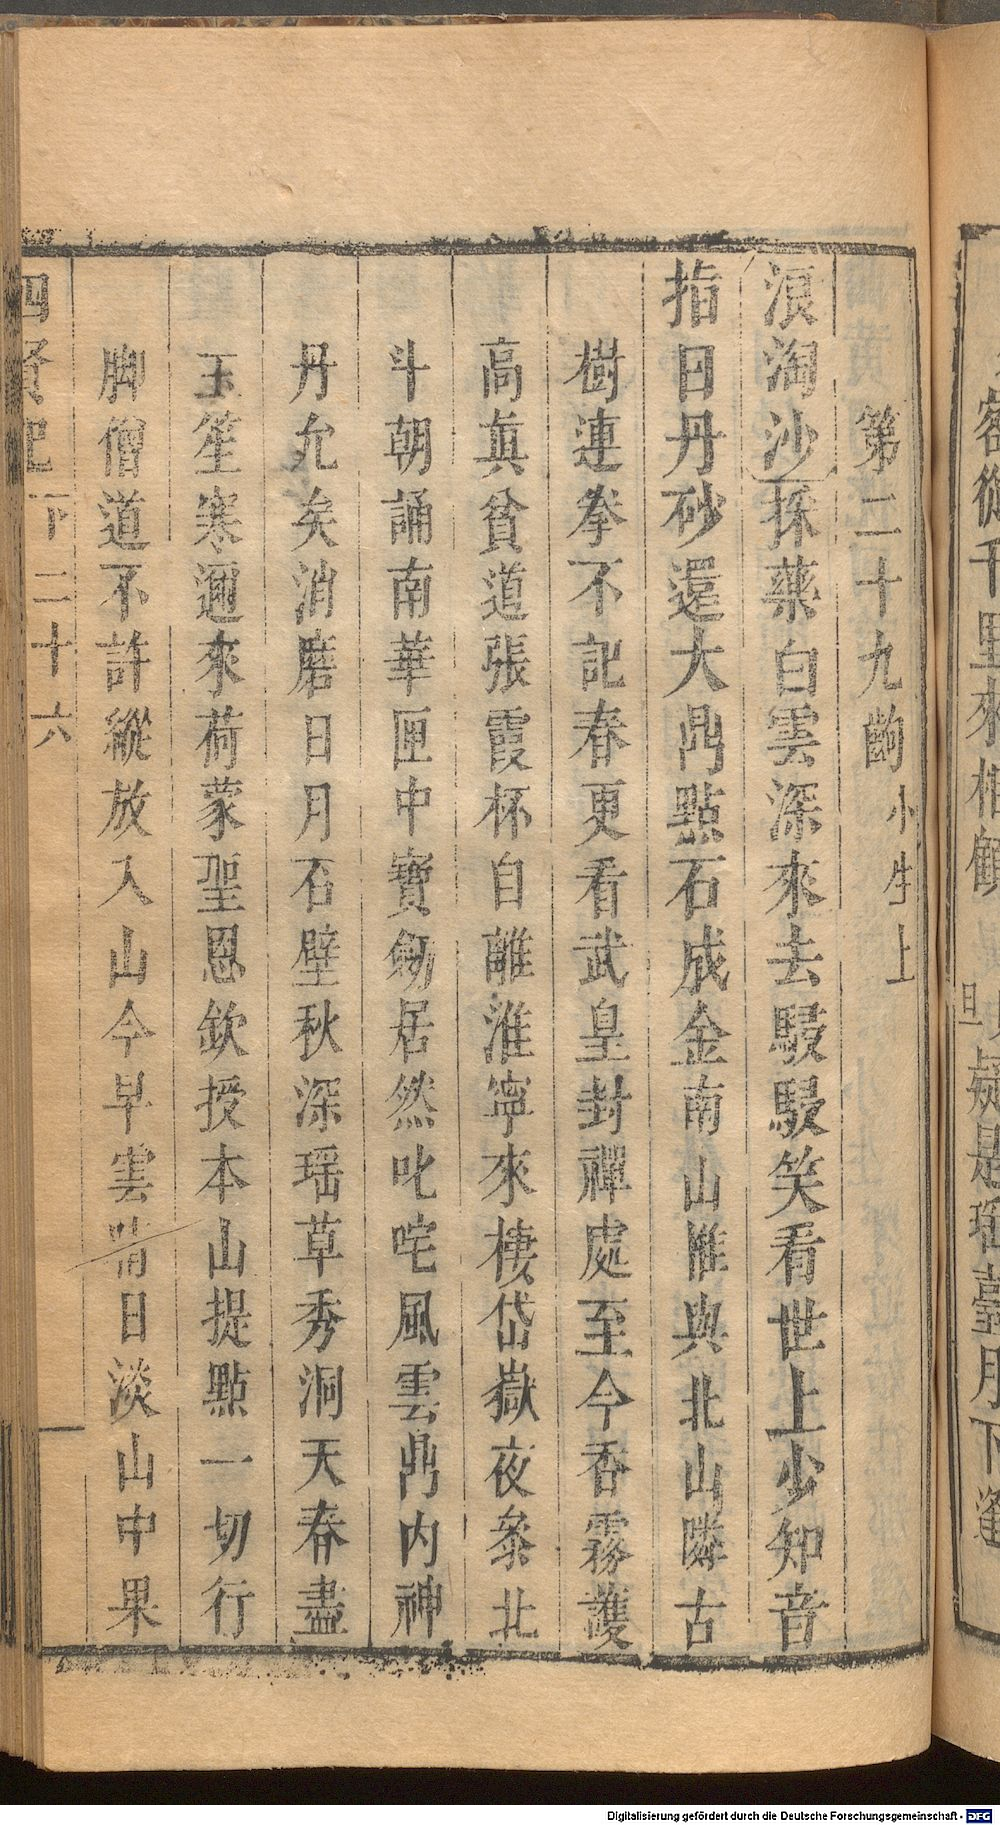 客從千里來相顧
旦
疑是瑤臺月下逢
第二十九齣
小生上
浪淘沙採藥白雲深來去駸駸笑看世上少知音
指日丹砂還大鼎點石成金南山惟與北山隣古
樹連拳不記春更看武皇封禪處至今香霧護
高眞貧道張霞杯自離淮寧來棲岱嶽夜叅北
斗朝誦南華匣中寶劒居然叱咤風雲鼎內神
丹允矣消磨日月石壁秋深瑶草秀洞天春盡
玉笙寒邇來荷蒙聖恩欽授本山提點一切行
脚僧道不許縱放入山今早雲晴日淡山中果
四賢記
下
二十六
Digitalisierung gefördert durch die Deutsche Forschungsgemeinschaft - DFG